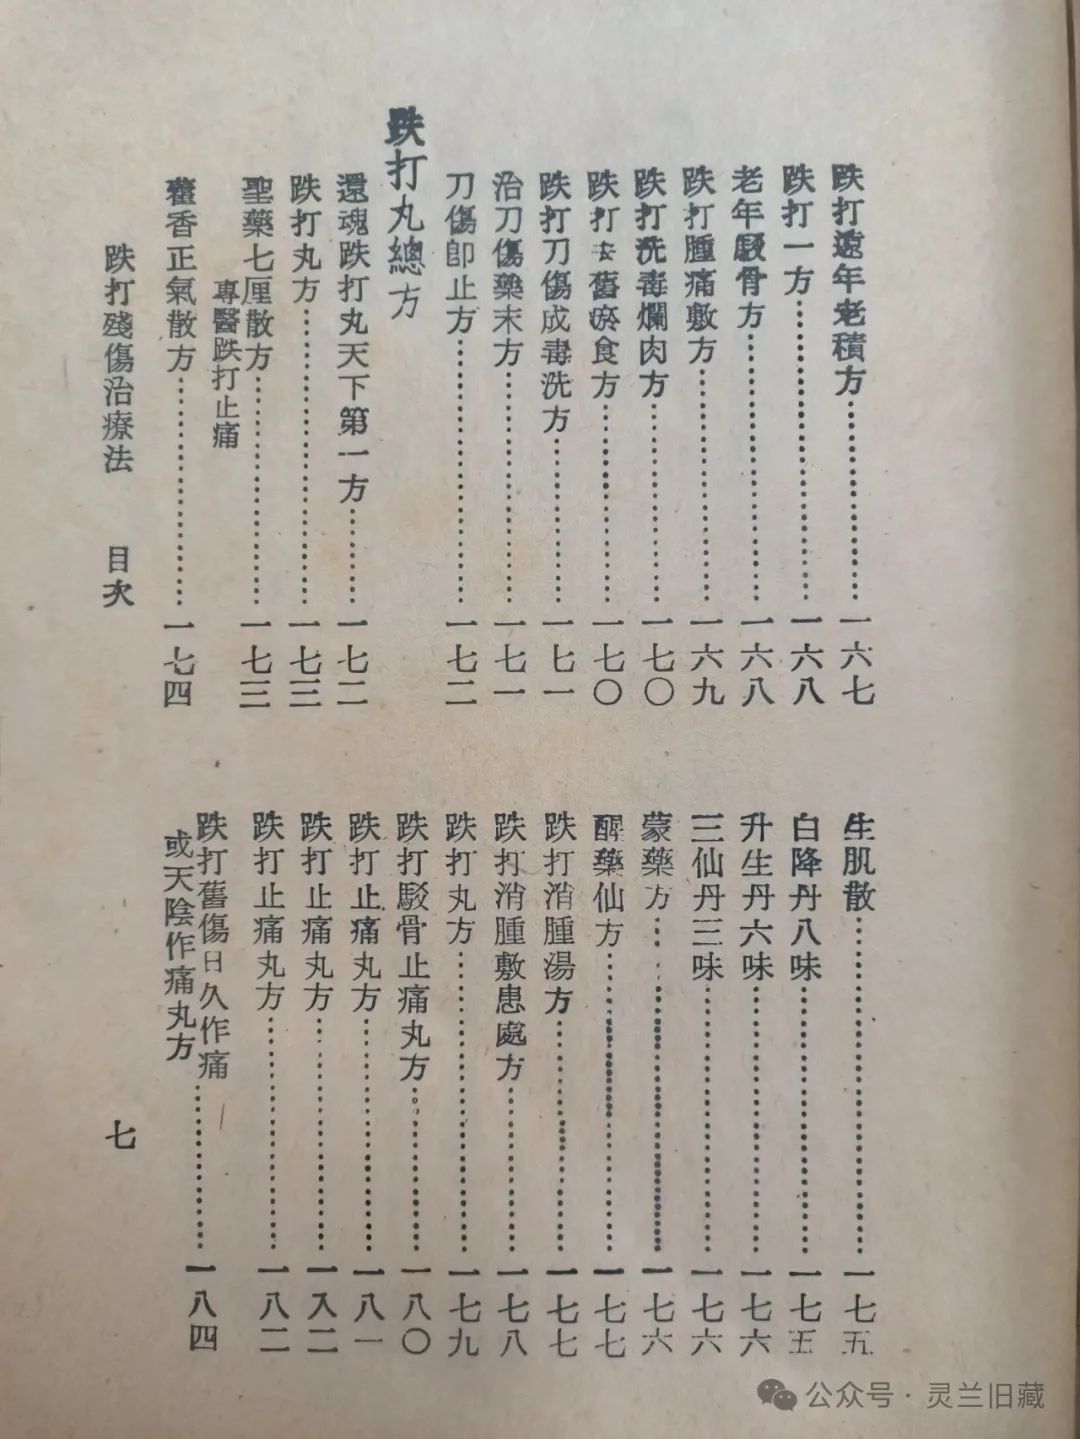 跌打遠年老積方…………一六七
跌打一方…………一六八
老年駁骨方…………一六八
跌打腫痛敷方…………一六九
跌打洗毒爛肉方…………一七〇
跌打去舊瘀食方…………一七〇
跌打刀傷成毒洗方…………一七一
治刀傷藥末方…………一七一
刀傷卽止方…………一七二
跌打丸總方
還魂跌打丸天下第一方…………一七二
跌打丸方…………一七三
聖藥七厘散方…………一七三
專醫跌打止痛
藿香正氣散方…………一七四
生肌散…………一七五
白降丹八味…………一七五
升生丹六味…………一七六
三仙丹三味…………一七六
蒙藥方…………一七六
醒藥仙方…………一七七
跌打消腫湯方…………一七七
跌打消腫敷患處方…………一七八
跌打丸方…………一七九
跌打駁骨止痛丸方…………一八〇
跌打止痛丸方…………一八一
跌打止痛丸方…………一八二
跌打止痛丸方…………一八二
跌打舊傷日久作痛
或天陰作痛丸方…………一八四
跌打殘傷治療法 目次
七
公众号·灵兰旧藏